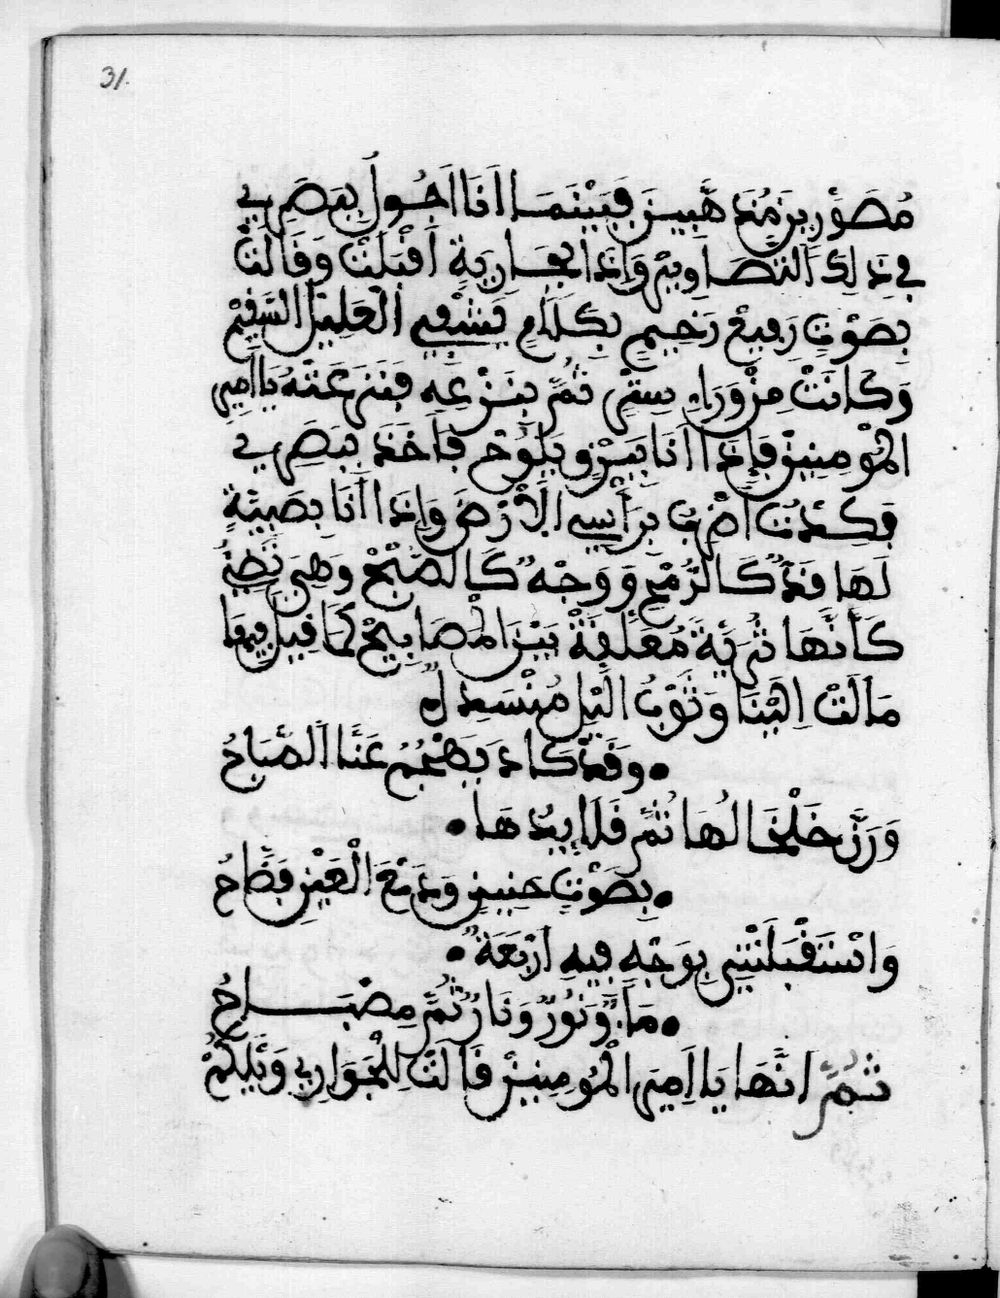 31.
مُصَوَّرِينَ مُذَهَّبِينَ فَبَيْنَمَا أَنَا أَجُولُ بِبَصَرِي
فِي ذَلِكَ التَّصَاوِيرِ وَإِذَا بِجَارِيَةٍ أَقْبَلَتْ وَقَالَتْ
بِصَوْتٍ رَفِيعٍ رَخِيمٍ بِكَلَامٍ يَشْفِي الْعَلِيلَ السَّقِيمَ
وَكَانَتْ مِنْ وَرَاءِ سِتْرٍ ثُمَّ بِنَزْعِهِ فَنَزَعَتْهُ يَا أَمِيرَ
الْمُومِنِينَ فَإِذَا أَنَا بِبَرْقٍ يَلُوحُ فَأَخَذَ بِبَصَرِي
فَكِدْتُ أَضْرِبُ بِرَأْسِي الْأَرْضَ وَإِذَا أَنَا بِصَبِيَّةٍ
لَهَا قَدٌّ كَالرُّمْحِ وَوَجْهٌ كَالصُّبْحِ وَهِيَ تَضِيُّ
كَأَنَّهَا ثُرَيَّةٌ مُعَلَّقَةٌ بَيْنَ الْمَصَابِيحِ كَمَا قِيلَ فِيهَا
مَالَتْ إِلَيْنَا وَثَوْبُ اللَّيْلِ مُنْسَدِلٌ
• وَقَدْ كَادَ يَهْجُمُ عَنَّا الصَّبَاحُ
وَرَنَّ خَلْخَالُهَا ثُمَّ قَلَايِدُهَا •
• بِصَوْتٍ حَنِينٍ وَدَمْعَ الْعَيْنِ فَضَّاحُ
وَاسْتَقْبَلَتْنِي بِوَجْهٍ فِيهِ أَرْبَعَةٌ •
• مَاءٌ وَنُورٌ وَنَارٌ ثُمَّ مِصْبَاحُ
ثُمَّ إِنَّهَا يَا أَمِيرَ الْمُومِنِينَ قَالَتْ لِلْجَوَارِي وَيْلَكُمْ